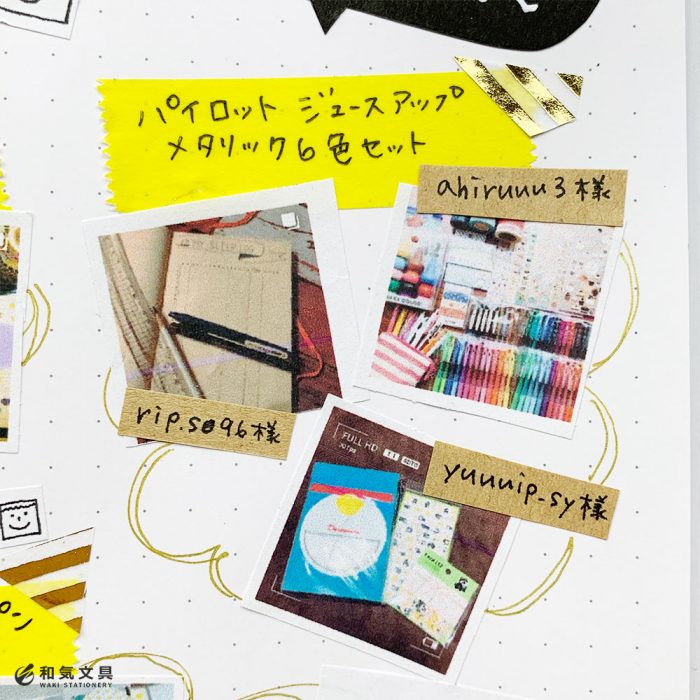 パイロット ジュースアップ
メタリック6色セット
ahiruuu3様
rip.s096様
FULL HD
yuuuip_sy様
ン
和気文具
WAKI STATIONERY